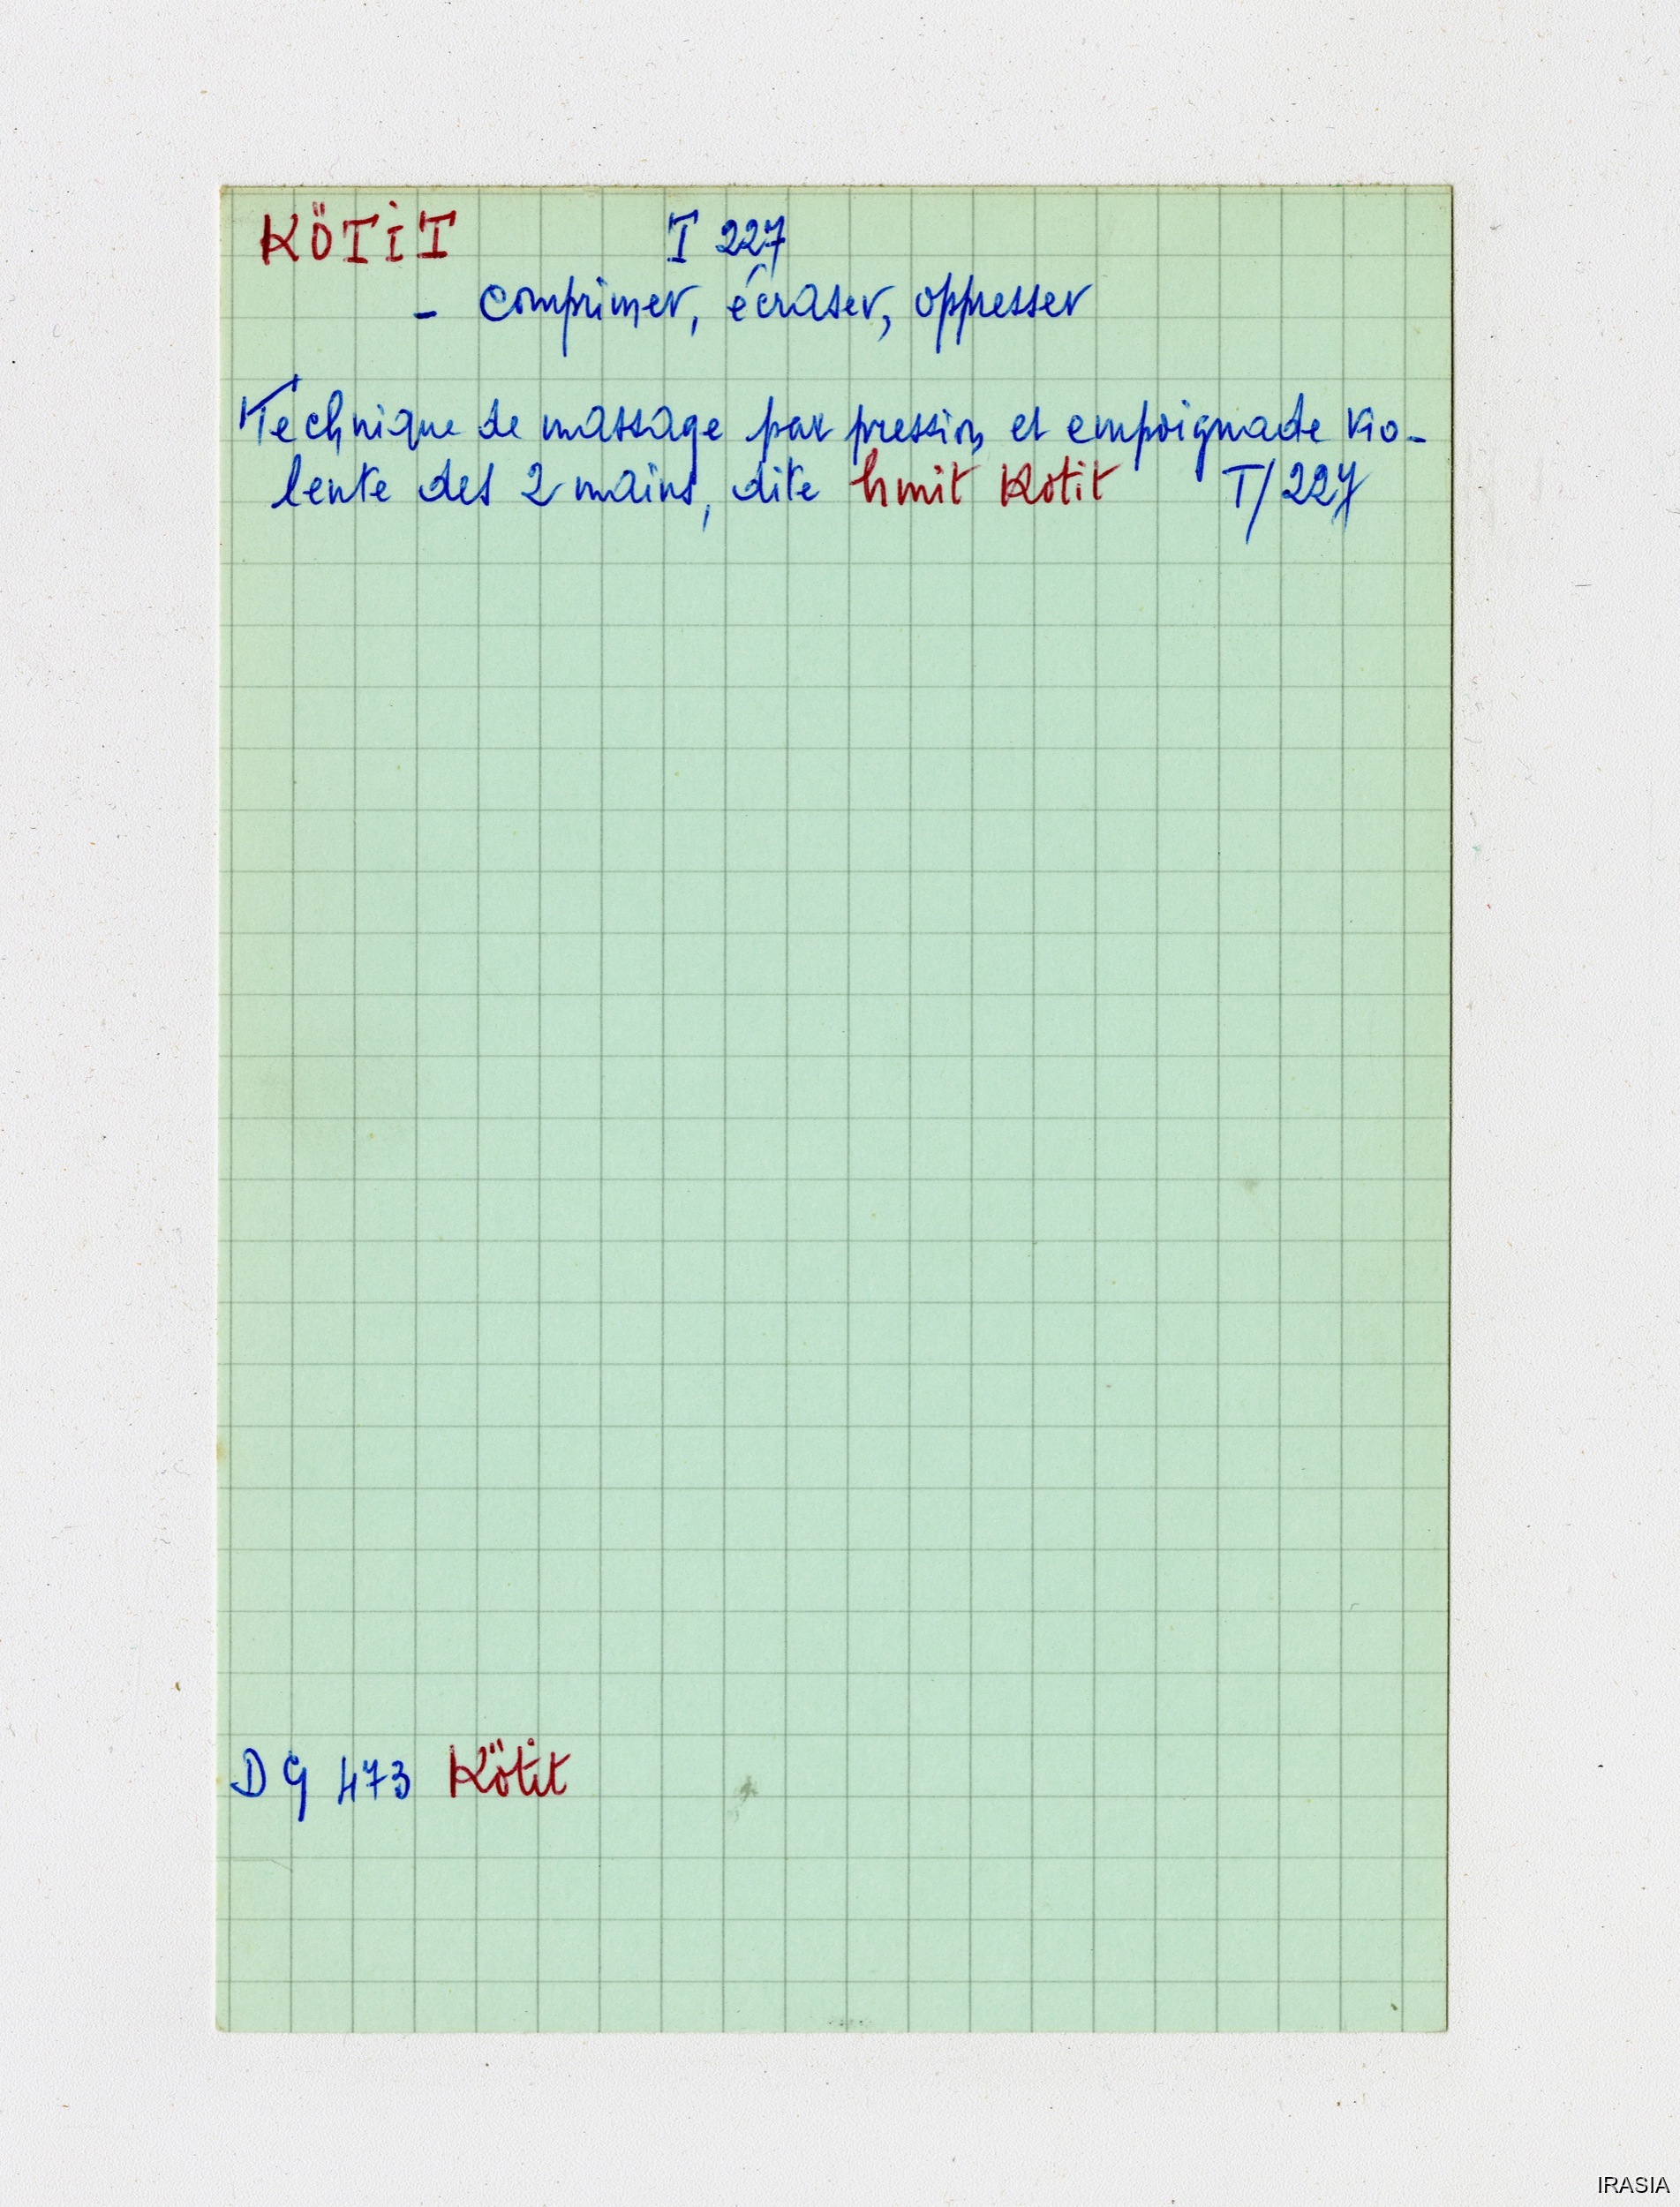 KÖTiT T 227
- comprimer, écraser, oppresser
Technique de massage par pression et empoignade vio-
lente des 2 mains, dite hmit Kotit T/227
DG 473 Kötit
IRASIA